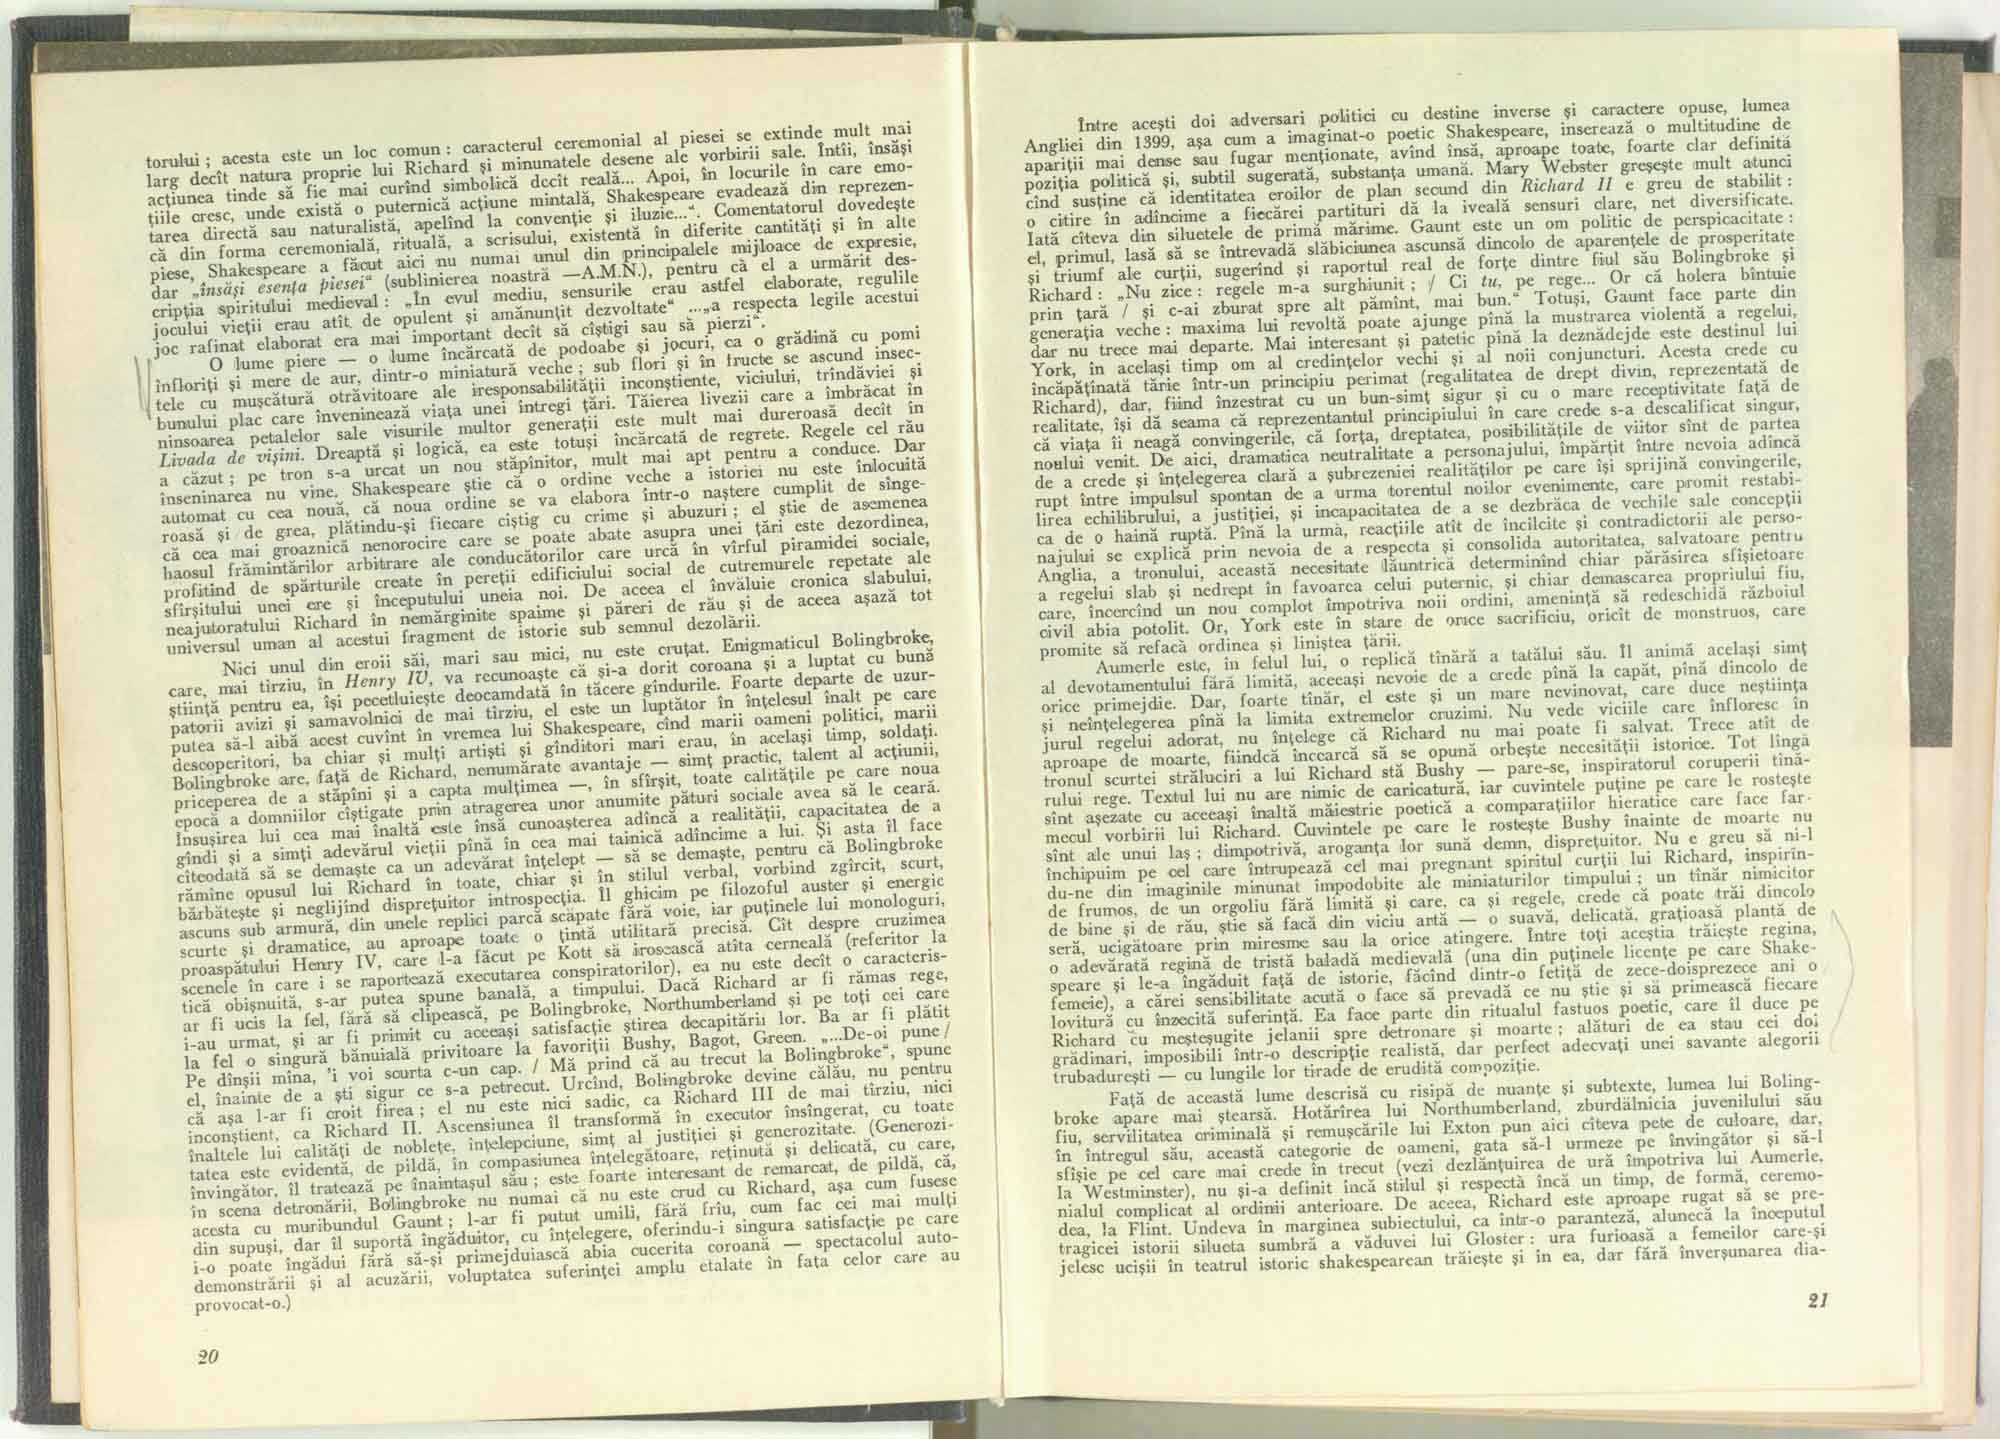 torului ; acesta este un loc comun : caracterul ceremonial al piesei se extinde mult mai
larg decît natura proprie lui Richard și minunatele desene ale vorbirii sale. Întîi, însăși
acțiunea tinde să fie mai curînd simbolică decît reală... Apoi, în locurile în care emo-
țiile cresc, unde există o puternică acțiune mintală, Shakespeare evadează din reprezen-
tarea directă sau naturalistă, apelînd la convenție și iluzie...“. Comentatorul dovedește
că din forma ceremonială, rituală, a scrisului, existentă în diferite cantități și în alte
piese, Shakespeare a făcut aici nu numai unul din principalele mijloace de expresie,
dar „însăși esența piesei“ (sublinierea noastră —A.M.N.), pentru că el a urmărit des-
cripția spiritului medieval : „În evul mediu, sensurile erau astfel elaborate, regulile
jocului vieții erau atît de opulent și amănunțit dezvoltate“ ...„a respecta legile acestui
joc rafinat elaborat era mai important decît să cîștigi sau să pierzi“.
O lume piere — o lume încărcată de podoabe și jocuri, ca o grădină cu pomi
înfloriți și mere de aur, dintr-o miniatură veche ; sub flori și în fructe se ascund insec-
tele cu mușcătură otrăvitoare ale iresponsabilității inconștiente, viciului, trîndăviei și
bunului plac care înveninează viața unei întregi țări. Tăierea livezii care a îmbrăcat în
ninsoarea petalelor sale visurile multor generații este mult mai dureroasă decît în
Livada de vișini. Dreaptă și logică, ea este totuși încărcată de regrete. Regele cel rău
a căzut ; pe tron s-a urcat un nou stăpînitor, mult mai apt pentru a conduce. Dar
înseninarea nu vine. Shakespeare știe că o ordine veche a istoriei nu este înlocuită
automat cu cea nouă, că noua ordine se va elabora într-o naștere cumplit de sînge-
roasă și de grea, plătindu-și fiecare cîștig cu crime și abuzuri ; el știe de asemenea
că cea mai groaznică nenorocire care se poate abate asupra unei țări este dezordinea,
haosul frămîntărilor arbitrare ale conducătorilor care urcă în vîrful piramidei sociale,
profitînd de spărturile create în pereții edificiului social de cutremurele repetate ale
sfîrșitului unei ere și începutului uneia noi. De aceea el învăluie cronica slabului,
neajutoratului Richard în nemărginite spaime și păreri de rău și de aceea așază tot
universul uman al acestui fragment de istorie sub semnul dezolării.
Nici unul din eroii săi, mari sau mici, nu este cruțat. Enigmaticul Bolingbroke,
care, mai tîrziu, în Henry IV, va recunoaște că și-a dorit coroana și a luptat cu bună
știință pentru ea, își pecetluiește deocamdată în tăcere gîndurile. Foarte departe de uzur-
patorii avizi și samavolnici de mai tîrziu, el este un luptător în înțelesul înalt pe care
putea să-l aibă acest cuvînt în vremea lui Shakespeare, cînd marii oameni politici, marii
descoperitori, ba chiar și mulți artiști și gînditori mari erau, în același timp, soldați.
Bolingbroke are, față de Richard, nenumărate avantaje — simț practic, talent al acțiunii,
priceperea de a stăpîni și a capta mulțimea —, în sfîrșit, toate calitățile pe care noua
epocă a domniilor cîștigate prin atragerea unor anumite pături sociale avea să le ceară.
Însușirea lui cea mai înaltă este însă cunoașterea adîncă a realității, capacitatea de a
gîndi și a simți adevărul vieții pînă în cea mai tainică adîncime a lui. Și asta îl face
cîteodată să se demaște ca un adevărat înțelept — să se demaște, pentru că Bolingbroke
rămîne opusul lui Richard în toate, chiar și în stilul verbal, vorbind zgîrcit, scurt,
bărbătește și neglijînd disprețuitor introspecția. Îl ghicim pe filozoful auster și energic
ascuns sub armură, din unele replici parcă scăpate fără voie, iar puținele lui monologuri,
scurte și dramatice, au aproape toate o țintă utilitară precisă. Cît despre cruzimea
proaspătului Henry IV, care l-a făcut pe Kott să irosească atîta cerneală (referitor la
scenele în care i se raportează executarea conspiratorilor), ea nu este decît o caracteris-
tică obișnuită, s-ar putea spune banală, a timpului. Dacă Richard ar fi rămas rege,
ar fi ucis la fel, fără să clipească, pe Bolingbroke, Northumberland și pe toți cei care
i-au urmat, și ar fi primit cu aceeași satisfacție știrea decapitării lor. Ba ar fi plătit
la fel o singură bănuială privitoare la favoriții Bushy, Bagot, Green. „...De-oi pune /
Pe dînșii mîna, 'i voi scurta c-un cap. / Mă prind că au trecut la Bolingbroke“, spune
el, înainte de a ști sigur ce s-a petrecut. Urcînd, Bolingbroke devine călău, nu pentru
că așa l-ar fi croit firea ; el nu este nici sadic, ca Richard III de mai tîrziu, nici
inconștient, ca Richard II. Ascensiunea îl transformă în executor însîngerat, cu toate
înaltele lui calități de noblețe, înțelepciune, simț al justiției și generozitate. (Generozi-
tatea este evidentă, de pildă, în compasiunea înțelegătoare, reținută și delicată, cu care,
învingător, îl tratează pe înaintașul său ; este foarte interesant de remarcat, de pildă, că,
în scena detronării, Bolingbroke nu numai că nu este crud cu Richard, așa cum fusese
acesta cu muribundul Gaunt ; l-ar fi putut umili, fără frîu, cum fac cei mai mulți
din supuși, dar îl suportă îngăduitor, cu înțelegere, oferindu-i singura satisfacție pe care
i-o poate îngădui fără să-și primejduiască abia cucerita coroană — spectacolul auto-
demonstrării și al acuzării, voluptatea suferinței amplu etalate în fața celor care au
provocat-o.)
20
Între acești doi adversari politici cu destine inverse și caractere opuse, lumea
Angliei din 1399, așa cum a imaginat-o poetic Shakespeare, inserează o multitudine de
apariții mai dense sau fugar menționate, avînd însă, aproape toate, foarte clar definită
poziția politică și, subtil sugerată, substanța umană. Mary Webster greșește mult atunci
cînd susține că identitatea eroilor de plan secund din Richard II e greu de stabilit :
o citire în adîncime a fiecărei partituri dă la iveală sensuri clare, net diversificate.
Iată cîteva din siluetele de primă mărime. Gaunt este un om politic de perspicacitate :
el, primul, lasă să se întrevadă slăbiciunea ascunsă dincolo de aparențele de prosperitate
și triumf ale curții, sugerînd și raportul real de forțe dintre fiul său Bolingbroke și
Richard : „Nu zice : regele m-a surghiunit ; / Ci tu, pe rege... Or că holera bîntuie
prin țară / și c-ai zburat spre alt pămînt, mai bun.“ Totuși, Gaunt face parte din
generația veche : maxima lui revoltă poate ajunge pînă la mustrarea violentă a regelui,
dar nu trece mai departe. Mai interesant și patetic pînă la deznădejde este destinul lui
York, în același timp om al credințelor vechi și al noii conjuncturi. Acesta crede cu
încăpățînată tărie într-un principiu perimat (regalitatea de drept divin, reprezentată de
Richard), dar, fiind înzestrat cu un bun-simț sigur și cu o mare receptivitate față de
realitate, își dă seama că reprezentantul principiului în care crede s-a descalificat singur,
că viața îi neagă convingerile, că forța, dreptatea, posibilitățile de viitor sînt de partea
noului venit. De aici, dramatica neutralitate a personajului, împărțit între nevoia adîncă
de a crede și înțelegerea clară a șubrezeniei realităților pe care își sprijină convingerile,
rupt între impulsul spontan de a urma torentul noilor evenimente, care promit restabi-
lirea echilibrului, a justiției, și incapacitatea de a se dezbrăca de vechile sale concepții
ca de o haină ruptă. Pînă la urmă, reacțiile atît de încîlcite și contradictorii ale perso-
najului se explică prin nevoia de a respecta și consolida autoritatea, salvatoare pentru
Anglia, a tronului, această necesitate lăuntrică determinînd chiar părăsirea sfîșietoare
a regelui slab și nedrept în favoarea celui puternic, și chiar demascarea propriului fiu,
care, încercînd un nou complot împotriva noii ordini, amenință să redeschidă războiul
civil abia potolit. Or, York este în stare de orice sacrificiu, oricît de monstruos, care
promite să refacă ordinea și liniștea țării.
Aumerle este, în felul lui, o replică tînără a tatălui său. Îl animă același simț
al devotamentului fără limită, aceeași nevoie de a crede pînă la capăt, pînă dincolo de
orice primejdie. Dar, foarte tînăr, el este și un mare nevinovat, care duce neștiința
și neînțelegerea pînă la limita extremelor cruzimi. Nu vede viciile care înfloresc în
jurul regelui adorat, nu înțelege că Richard nu mai poate fi salvat. Trece atît de
aproape de moarte, fiindcă încearcă să se opună orbește necesității istorice. Tot lîngă
tronul scurtei străluciri a lui Richard stă Bushy — pare-se, inspiratorul coruperii tînă-
rului rege. Textul lui nu are nimic de caricatură, iar cuvintele puține pe care le rostește
sînt așezate cu aceeași înaltă măiestrie poetică a comparațiilor hieratice care face far-
mecul vorbirii lui Richard. Cuvintele pe care le rostește Bushy înainte de moarte nu
sînt ale unui laș ; dimpotrivă, aroganța lor sună demn, disprețuitor. Nu e greu să ni-l
închipuim pe cel care întrupează cel mai pregnant spiritul curții lui Richard, inspirîn-
du-ne din imaginile minunat împodobite ale miniaturilor timpului ; un tînăr nimicitor
de frumos, de un orgoliu fără limită și care, ca și regele, crede că poate trăi dincolo
de bine și de rău, știe să facă din viciu artă — o suavă, delicată, grațioasă plantă de
seră, ucigătoare prin miresme sau la orice atingere. Între toți aceștia trăiește regina,
o adevărată regină de tristă baladă medievală (una din puținele licențe pe care Shake-
speare și le-a îngăduit față de istorie, făcînd dintr-o fetiță de zece-doisprezece ani o
femeie), a cărei sensibilitate acută o face să prevadă ce nu știe și să primească fiecare
lovitură cu înzecită suferință. Ea face parte din ritualul fastuos poetic, care îl duce pe
Richard cu meșteșugite jelanii spre detronare și moarte ; alături de ea stau cei doi
grădinari, imposibili într-o descripție realistă, dar perfect adecvați unei savante alegorii
trubadurești — cu lungile lor tirade de erudită compoziție.
Față de această lume descrisă cu risipă de nuanțe și subtexte, lumea lui Boling-
broke apare mai ștearsă. Hotărîrea lui Northumberland, zburdălnicia juvenilului său
fiu, servilitatea criminală și remușcările lui Exton pun aici cîteva pete de culoare, dar,
în întregul său, această categorie de oameni, gata să-l urmeze pe învingător și să-l
sfîșie pe cel care mai crede în trecut (vezi dezlănțuirea de ură împotriva lui Aumerle,
la Westminster), nu și-a definit încă stilul și respectă încă un timp, de formă, ceremo-
nialul complicat al ordinii anterioare. De aceea, Richard este aproape rugat să se pre-
dea, la Flint. Undeva în marginea subiectului, ca într-o paranteză, alunecă la începutul
tragicei istorii silueta sumbră a văduvei lui Gloster : ura furioasă a femeilor care-și
jelesc ucișii în teatrul istoric shakespearean trăiește și în ea, dar fără înverșunarea dia-
21